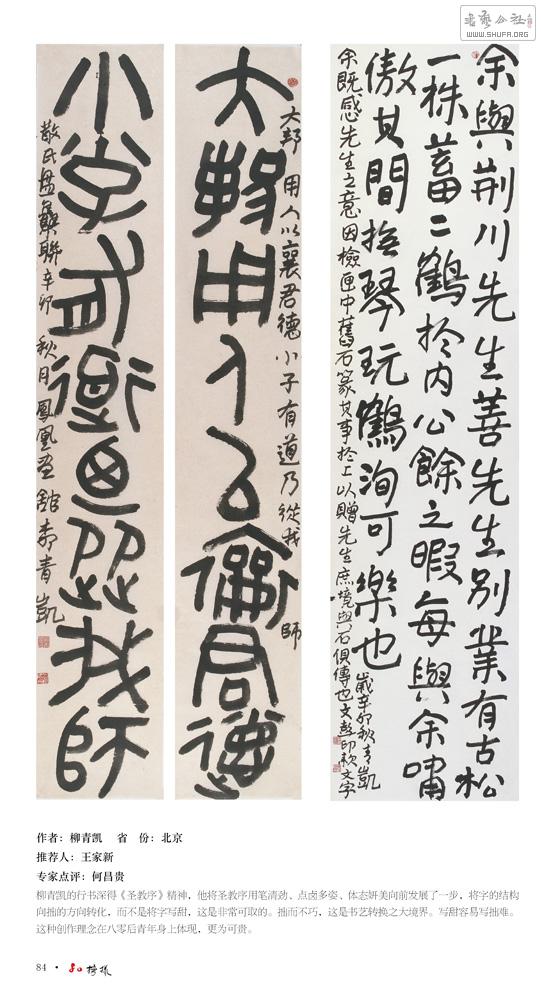 書藝公社
WWW.SHUFA.ORG
余與荆川先生善先生別業有古松
一株蓄二鶴於内公餘之暇每與余嘯
傲其間撫琴玩鶴洵可樂也
歲辛卯秋青凱
余既感先生之意因檢匣中舊石篆其事於上以贈先生庶境與石俱傳也文彭印款文字
大邦用人以襄君德小子有道乃從我師
大邦用人以襄君德
小子有道乃從我師
散氏盤集聯辛卯秋月鳳凰畫館柳青凱
作者：柳青凯 省 份：北京
推荐人：王家新
专家点评：何昌贵
柳青凯的行书深得《圣教序》精神，他将圣教序用笔清劲、点卤多姿、体态妍美向前发展了一步，将字的结构
向拙的方向转化，而不是将字写甜，这是非常可取的。拙而不巧，这是书艺转换之大境界。写甜容易写拙难。
这种创作理念在八零后青年身上体现，更为可贵。
84 •